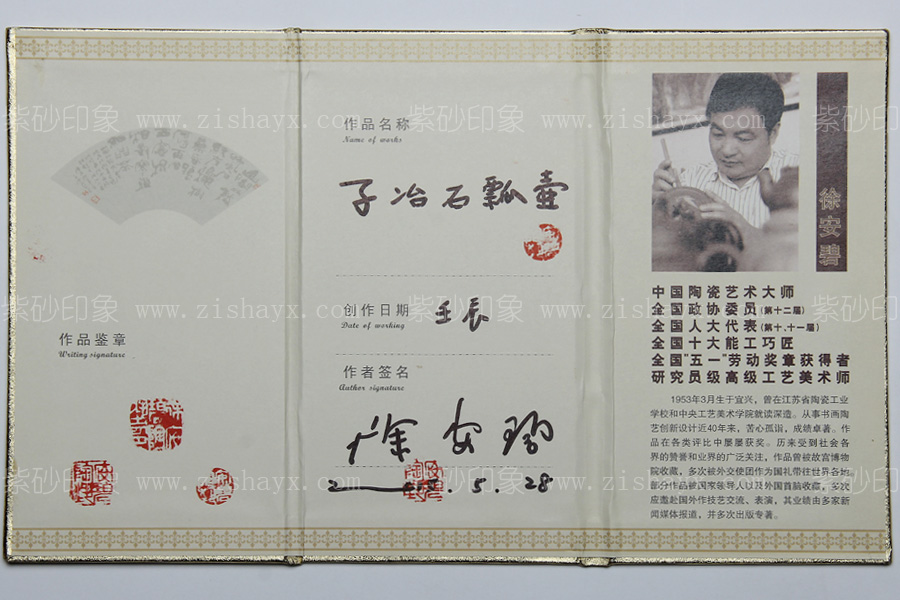 作品鉴章
Writing signature
作品名称
Name of works
子冶石瓢壶
创作日期
Date of working
壬辰
作者签名
Author signature
徐安碧
5.28
徐安碧
中国陶瓷艺术大师
全国政协委员(第十二届)
全国人大代表(第十、十一届)
全国十大能工巧匠
全国"五一"劳动奖章获得者
研究员级高级工艺美术师
1953年3月生于宜兴，曾在江苏省陶瓷工业
学校和中央工艺美术学院就读深造。从事书画陶
艺创新设计近40年来，苦心孤诣，成绩卓著。作
品在各类评比中屡屡获奖。历来受到社会各
界的赞誉和业界的广泛关注，作品曾被故宫博物
院收藏，多次被外交使团作为国礼带往世界各地
部分作品被国家领导人以及外国首脑收藏，多次
应邀赴国外作技艺交流、表演，其业绩由多家新
闻媒体报道，并多次出版专著。
紫砂印象 www.zishayx.com 紫砂印象 www.zishayx.com 紫砂印象
紫砂印象 www.zishayx.com 紫砂印象 www.zishayx.com 紫砂印象
紫砂印象 www.zishayx.com 紫砂印象 www.zishayx.com 紫砂印象